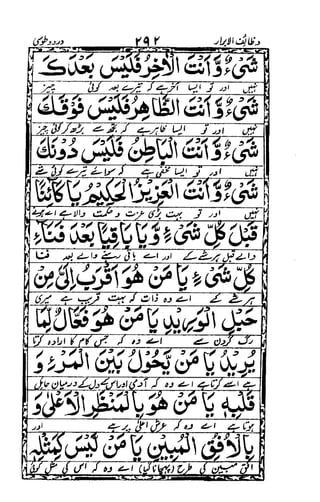 وظائف الابرار ۲۹۲ درود طوسی
شَیْءٌ وَّاَنْتَ الْاٰخِرُ فَلَیْسَ بَعْدَكَ
نہیں اور تو ایسا آخر ہے کہ تیرے بعد کوئی چیز
شَیْءٌ وَّاَنْتَ الظَّاهِرُ فَلَیْسَ فَوْقَكَ
نہیں اور تو ایسا ظاہر ہے کہ تجھ سے بڑھ کر کوئی چیز
شَیْءٌ وَّاَنْتَ الْبَاطِنُ فَلَیْسَ دُوْنَكَ
نہیں اور تو ایسا مخفی ہے کہ سوائے تیرے کوئی شے
شَیْءٌ وَّاَنْتَ الْعَزِیْزُ الْحَكِیْمُ یَا كَآئِنًا
نہیں اور تو بہت بڑی عزت و حکمت والا ہے اے ہونے
قَبْلَ كُلِّ شَیْءٍ وَّیَا بَاقِیًا بَعْدَ فَنَآءِ
والے قبل ہر شے کے اور اے باقی رہنے والے بعد فنا
كُلِّ شَیْءٍ یَا مَنْ هُوَ اَقْرَبُ اِلَیَّ مِنْ
ہر شے کے اے وہ ذات کہ بہت قریب ہے میری
حَبْلِ الْوَرِیْدِ یَا مَنْ هُوَ فَعَّالٌ لِّمَا
رگ گردن سے اے وہ کہ جس کام کا ارادہ کرتا
یُرِیْدُ یَا مَنْ یَّحُوْلُ بَیْنَ الْمَرْءِ وَ
ہے اسے کرتا ہے اے وہ کہ آدمی اور اس کے دل کے درمیان حائل
قَلْبِهٖ یَا مَنْ هُوَ بِالْمَنْظَرِ الْاَعْلٰی وَ
ہوتا ہے اے وہ کہ عرش اعلیٰ پر ہے اور
بِالْاُفُقِ الْمُبِیْنِ یَا مَنْ لَیْسَ كَمِثْلِهٖ
افق مبین کی طرح (پہچانا گیا) اے وہ کہ اس کی مثل کوئی